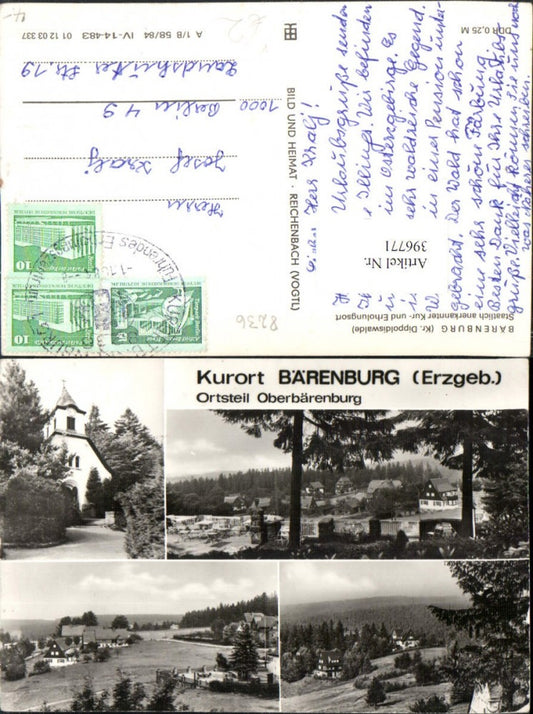 DDR 0,25 M
A 1/B 58/84 IV-14-483 01 12 03 337
BILD UND HEIMAT · REICHENBACH (VOGTL)
BÄRENBURG (Kr. Dippoldiswalde)
Staatlich anerkannter Kur- und Erholungsort
Artikel Nr.
396771
Herr Kralj!
Urlaubsgrüße senden
Illinger. Wir befinden
im Osterzgebirge. Es
sehr waldreiche Gegend.
in einer Pension unter-
gebracht. Der Wald hat schon
eine sehr schöne Färbung
Besten Dank für Ihre Urlaubs-
grüße. Vielleicht können Sie uns mal
was Näheres schreiben.
Herrn
Josef Kralj
1000 Berlin 49
Landshuter Str. 19
8236
10
10
5
Kurort BÄRENBURG (Erzgeb.)
Ortsteil Oberbärenburg